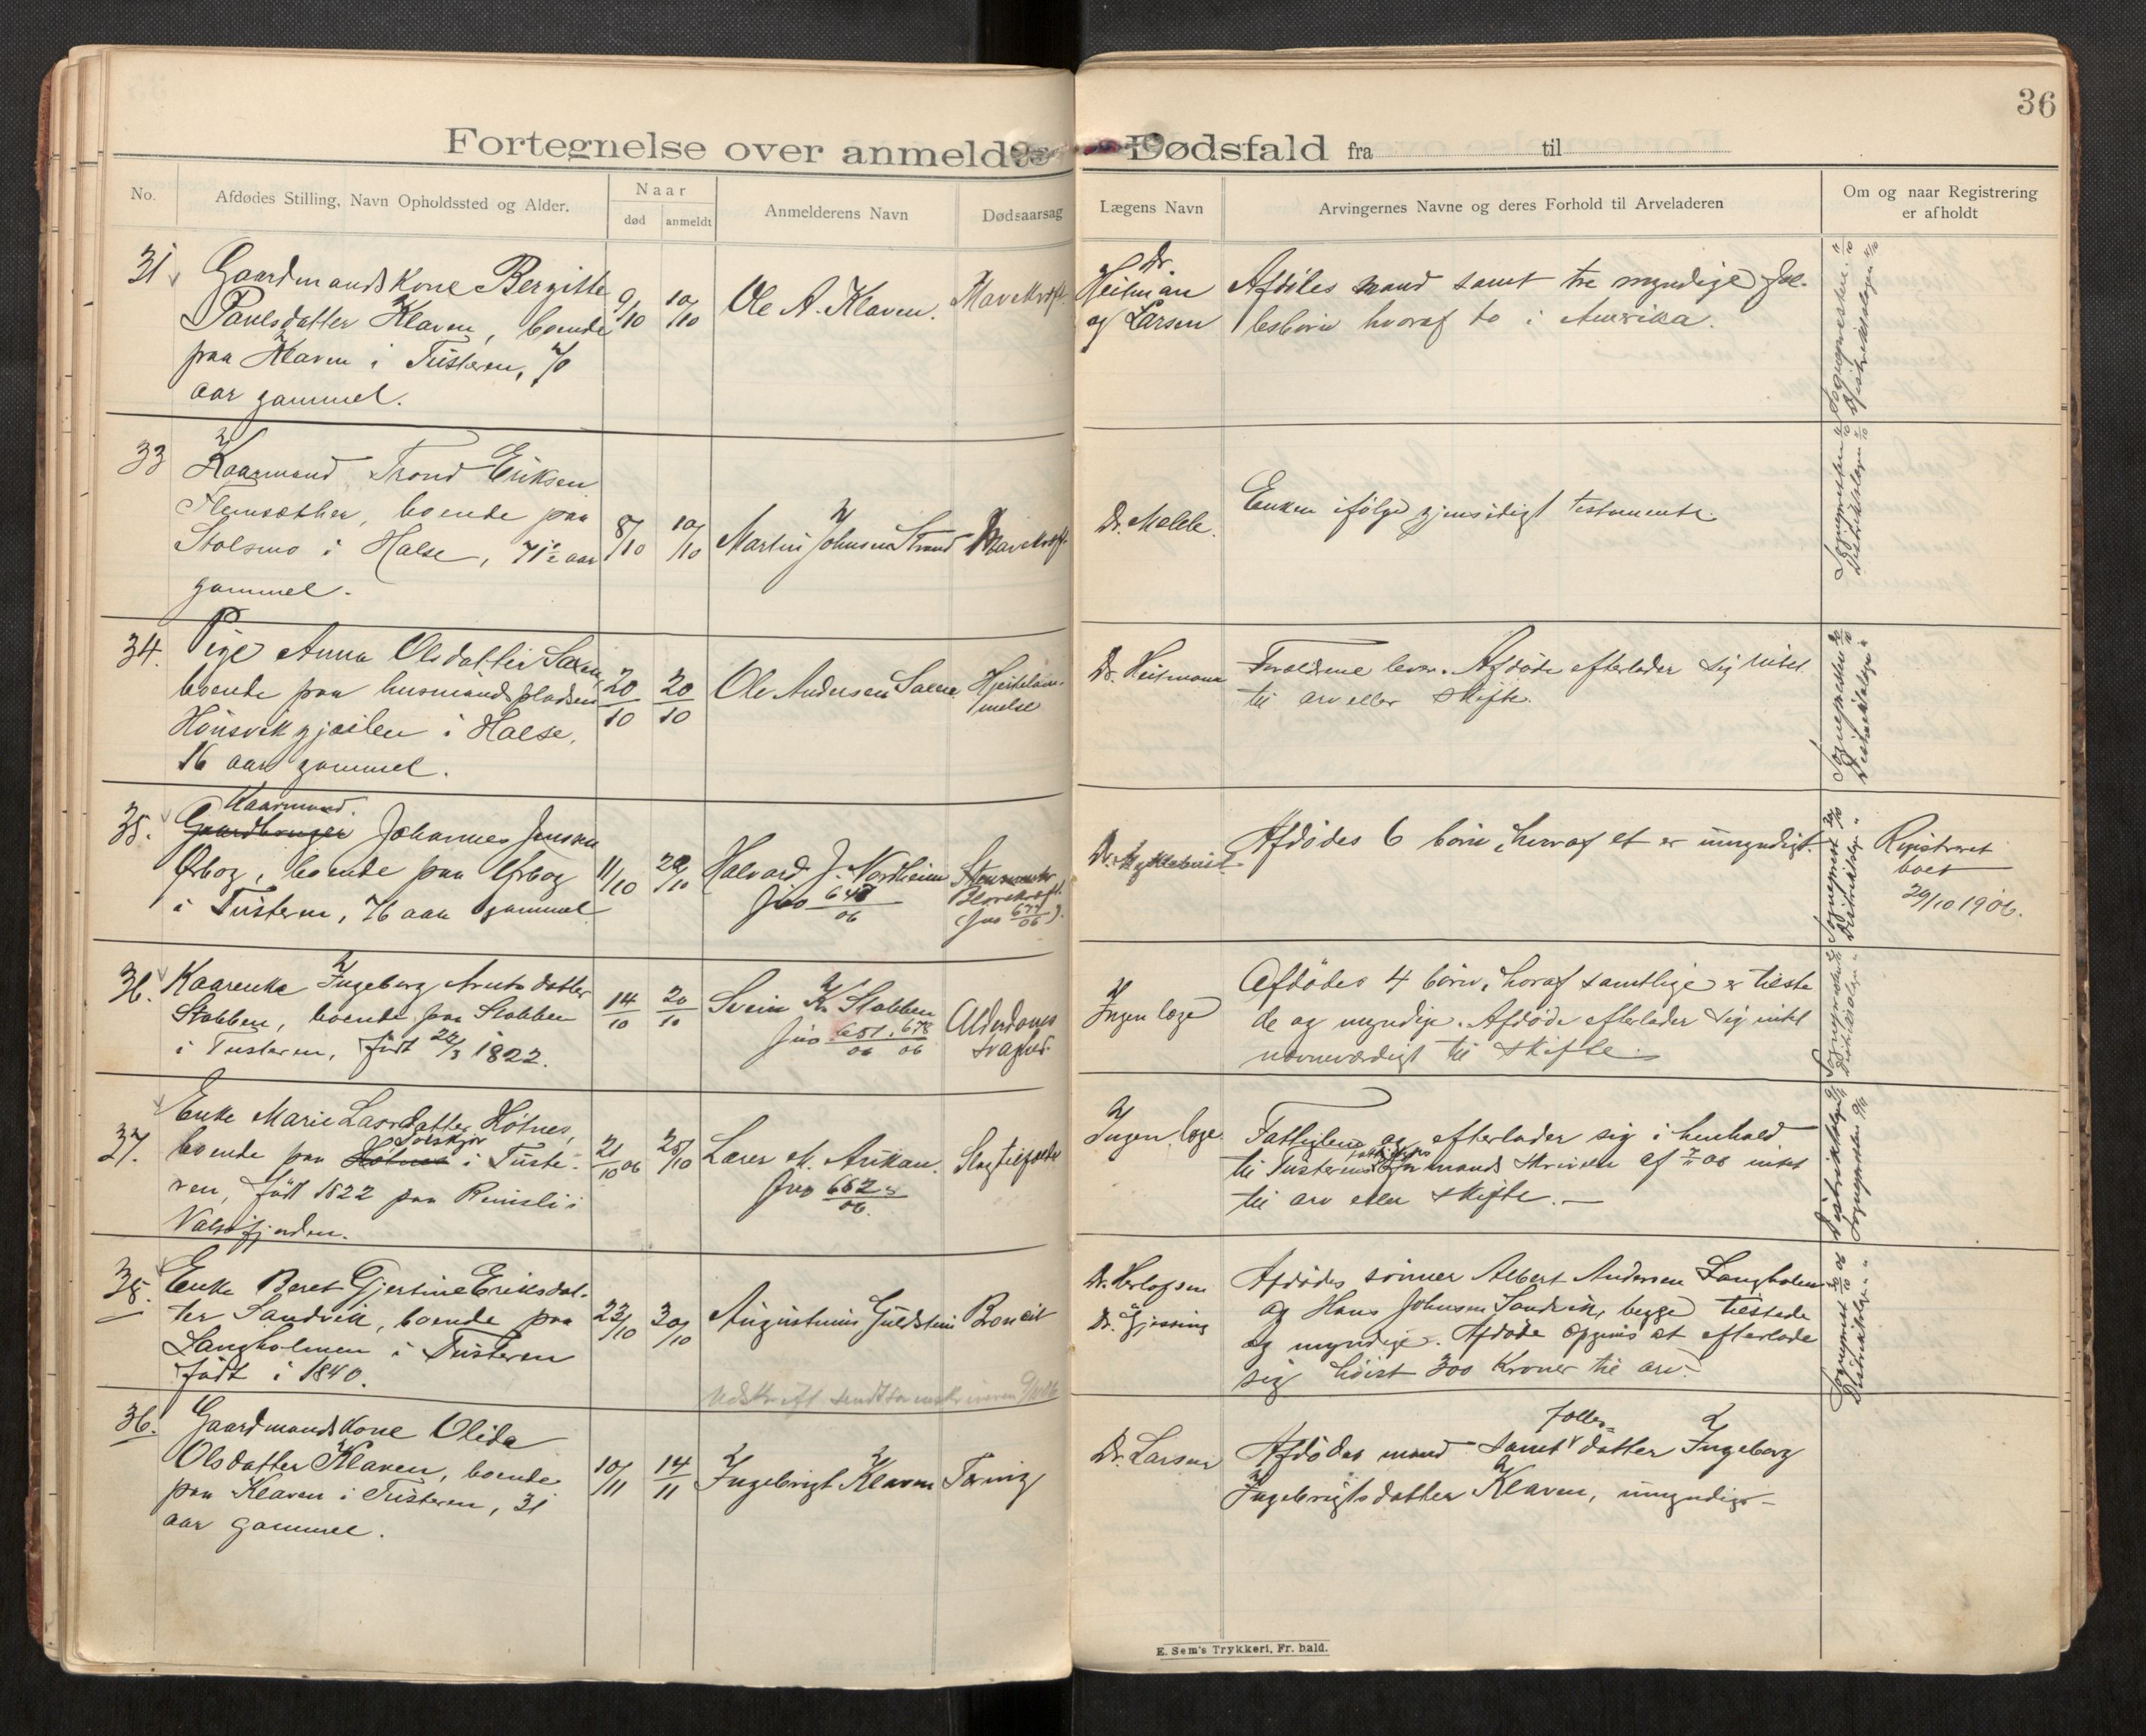 36
Fortegnelse over anmeldte Dødsfald fra til
No.
Afdødes Stilling, Navn Opholdssted og Alder.
Naar
død
anmeldt
Anmelderens Navn
Dødsaarsag
Lægens Navn
Arvingernes Navne og deres Forhold til Arveladeren
Om og naar Registrering
er afholdt
31
Gaardmandskone Bergitte
Paulsdatter Klaven, boende
paa Klaven i Tusteren, 70
aar gammel.
9/10
10/10
Ole A. Klaven.
Mavekræft
Dr.
Heitman
og Larsen
Afdødes mand samt tre myndige fæl-
lesbørn hvoraf to i Amerika.
Sogneprester 11/10
Distriktslægen 11/10
33
Kaarmand Trond Eriksen
Flemsæther, boende paa
Stolsmo i Halse, 71 1/2 aar
gammel.
8/10
10/10
Martin Johnsen Strand
Mavekræft
Dr. Melble.
Enken ifølge gjensidigt testamente.
Sognepresten 11/10
Distriktslægen 11/10
34.
Pige Anna Olsdatter Saxen,
boende paa husmandspladsen
Hønsvikgjeilen i Halse,
16 aar gammel.
20/10
20/10
Ole Andersen Saxen
Hjertelam-
melse
Dr. Heitmann
Forældrene lever. Afdøde efterlader sig intet
til arv eller skifte.
Sognepresten 20/10
Distriktslægen "
35.
Kaarmand.
Gaardbruger Johannes Jensen
Ørbog, boende paa Ørbog
i Tusteren, 76 aar gammel
11/10
20/10
Halvard J. Nordheim
Jno 648/06
Blærekræft
(Jno 677/06).
Dr. Myklebust.
Afdødes 6 børn, hvoraf et er umyndigt.
Registreret
boet
29/10 1906.
36.
Kaarenke Ingeborg Arntsdatter
Stabben, boende paa Stabben
i Tusteren, født 24/3 1822.
14/10
20/10
Svein K. Stabben
Jno 651/06, 678/06
Alderdoms
svaghed.
Ingen læge
Afdødes 4 børn, horaf samtlige er tilste
de og myndige. Afdøde efterlader sig intet
nævneværdigt til skifte.
37.
Enke Marie Larsdatter Holnes,
boende paa Holnes i Tuste-
ren, født 1822 paa Rimsli i
Valsøfjorden.
21/10 06
25/10
Lærer M. Aukan.
Jno 662/06.
Slagtilfælde
Ingen læge.
Fattiglem og efterlader sig i henhold
til Tusterens formands skrivelse af 7/11 06 intet
til arv eller skifte.
38.
Enke Beret Gjertine Eriksdat-
ter Sandvik, boende paa
Langholmen i Tusteren
født i 1840.
23/10
30/10
Augustinus Guldstein
Bronkit
Dr. Herlofsen
Dr. Gjessing
Afdødes sønner Albert Andersen Langholmen
og Hans Johnsen Sandvik, begge tilstede
og myndige. Afdøde opgives at efterlade
sig høist 300 Kroner til arv.
36.
Gaardmandskone Olida
Olsdatter Klaven, boende
paa Klaven i Tusteren, 31
aar gammel.
10/11
14/11
Ingebrigt Klaven
Tæring
Dr. Larsen
Afdødes mand samt fælles datter Ingeborg
Ingebrigtsdatter Klaven, umyndig
E. Sem's Trykkeri, Fr. hald.